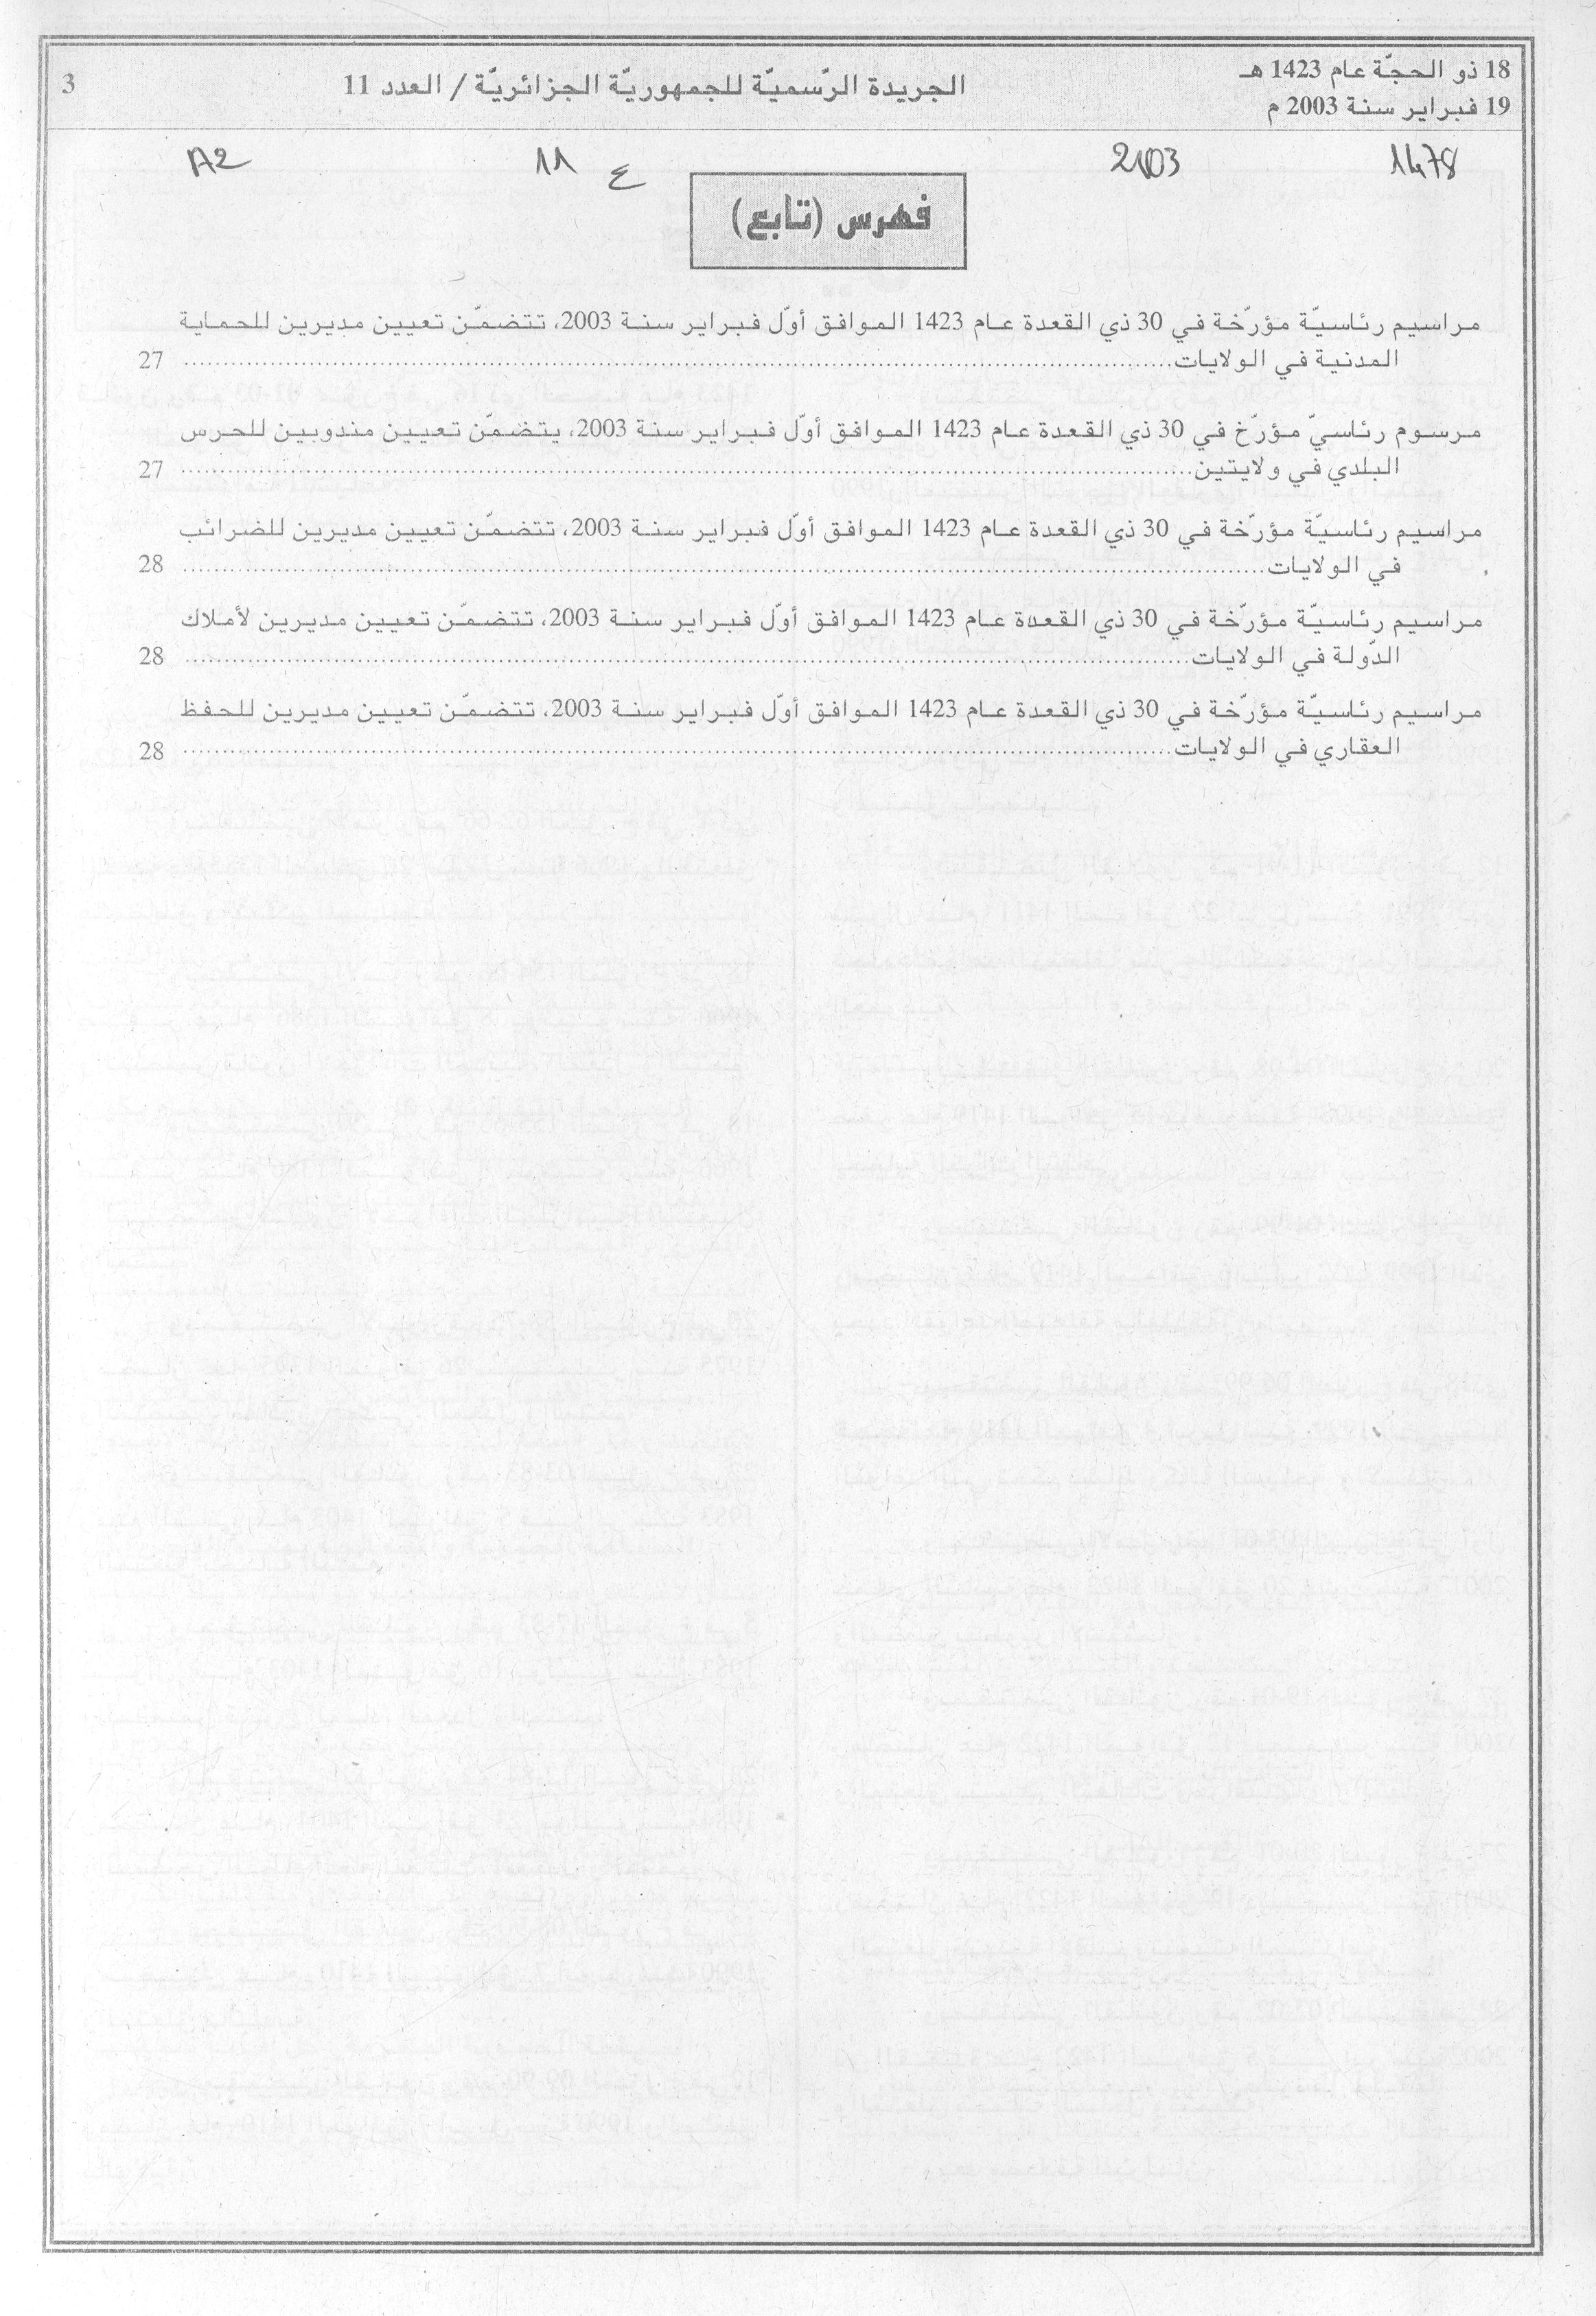 18 ذو الحجّة عام 1423 هـ
19 فبراير سنة 2003 م
الجريدة الرّسميّة للجمهوريّة الجزائريّة / العدد 11
3
1478 2003 ع 11 A2
فهرس (تابع)
مراسيم رئاسيّة مؤرّخة في 30 ذي القعدة عام 1423 الموافق أوّل فبراير سنة 2003، تتضمّن تعيين مديرين للحماية
المدنية في الولايات........................................ 27
مرسوم رئاسيّ مؤرّخ في 30 ذي القعدة عام 1423 الموافق أوّل فبراير سنة 2003، يتضمّن تعيين مندوبين للحرس
البلدي في ولايتين........................................ 27
مراسيم رئاسيّة مؤرّخة في 30 ذي القعدة عام 1423 الموافق أوّل فبراير سنة 2003، تتضمّن تعيين مديرين للضرائب
في الولايات........................................ 28
مراسيم رئاسيّة مؤرّخة في 30 ذي القعدة عام 1423 الموافق أوّل فبراير سنة 2003، تتضمّن تعيين مديرين لأملاك
الدّولة في الولايات........................................ 28
مراسيم رئاسيّة مؤرّخة في 30 ذي القعدة عام 1423 الموافق أوّل فبراير سنة 2003، تتضمّن تعيين مديرين للحفظ
العقاري في الولايات........................................ 28